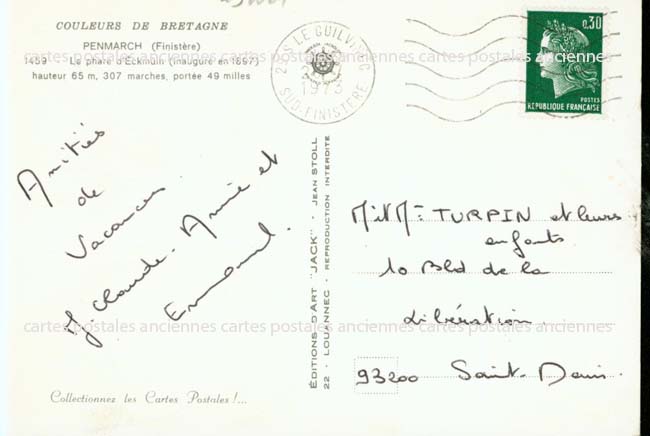 COULEURS DE BRETAGNE
PENMARCH (Finistère)
1459 Le phare d'Eckmühl (inauguré en 1897)
hauteur 65 m, 307 marches, portée 49 milles
Amitiés
de
Vacances
J. Claude - Annie et
Emmanuel.
Collectionnez les Cartes Postales !...
ÉDITIONS D'ART "JACK" - JEAN STOLL
22 - LOUANNEC - REPRODUCTION INTERDITE
29 S LE GUILVINEC
1973
SUD-FINISTÈRE
0,30
POSTES
RÉPUBLIQUE FRANÇAISE
M et Me TURPIN et leurs
enfants
10 Bld de la
Libération
93200 Saint-Denis
cartes postales anciennes cartes postales anciennes cartes postales anciennes
cartes postales anciennes cartes postales anciennes cartes postales anciennes